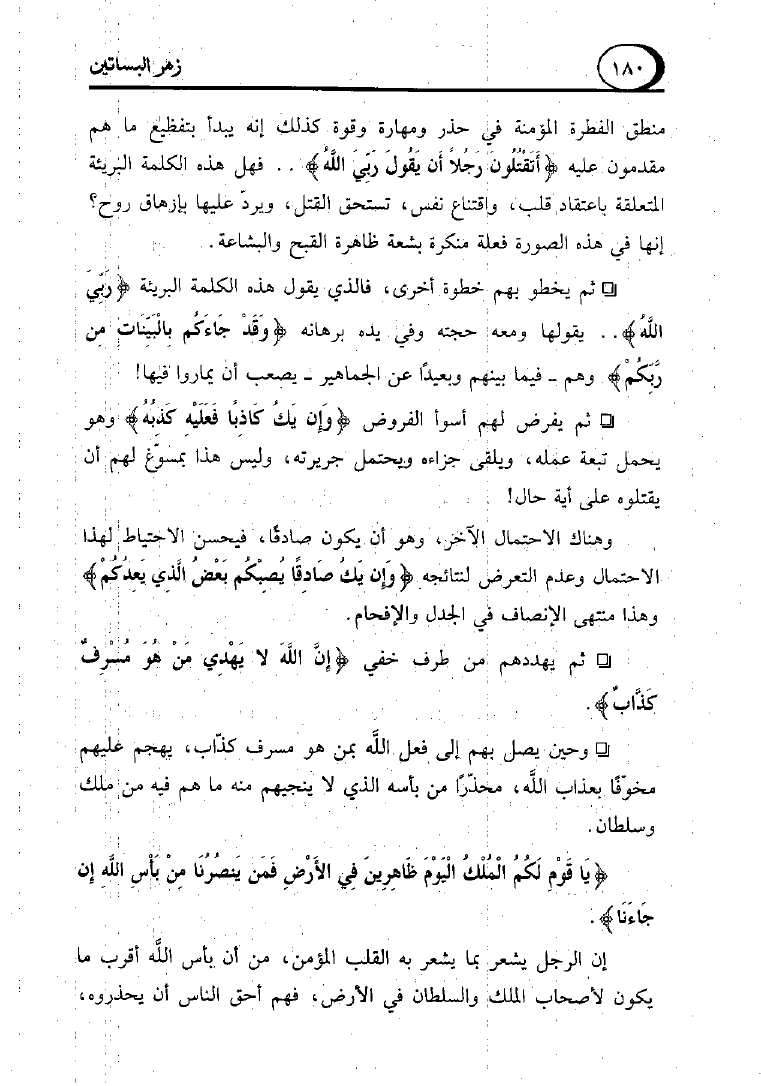 ١٨٠
زهر البساتين
منطق الفطرة المؤمنة في حذر ومهارة وقوة كذلك إنه يبدأ بتفظيع ما هم
مقدمون عليه ﴿أَتَقْتُلُونَ رَجُلاً أَن يَقُولَ رَبِّيَ اللَّهُ﴾ . . فهل هذه الكلمة البريئة
المتعلقة باعتقاد قلب، واقتناع نفس، تستحق القتل، ويردّ عليها بإزهاق روح؟
إنها في هذه الصورة فعلة منكرة بشعة ظاهرة القبح والبشاعة.
❏ ثم يخطو بهم خطوة أخرى، فالذي يقول هذه الكلمة البريئة ﴿رَبِّيَ
اللَّهُ﴾. . يقولها ومعه حجته وفي يده برهانه ﴿وَقَدْ جَاءَكُم بِالْبَيِّنَاتِ مِن
رَّبِّكُمْ﴾ وهم ـ فيما بينهم وبعيدًا عن الجماهير ـ يصعب أن يماروا فيها!
❏ ثم يفرض لهم أسوأ الفروض ﴿وَإِن يَكُ كَاذِبًا فَعَلَيْهِ كَذِبُهُ﴾ وهو
يحمل تبعة عمله، ويلقى جزاءه ويحتمل جريرته، وليس هذا بمسوّغ لهم أن
يقتلوه على أية حال!
وهناك الاحتمال الآخر، وهو أن يكون صادقًا، فيحسن الاحتياط لهذا
الاحتمال وعدم التعرض لنتائجه ﴿وَإِن يَكُ صَادِقًا يُصِبْكُم بَعْضُ الَّذِي يَعِدُكُمْ﴾
وهذا منتهى الإنصاف في الجدل والإفحام.
❏ ثم يهددهم من طرف خفي ﴿إِنَّ اللَّهَ لا يَهْدِي مَنْ هُوَ مُسْرِفٌ
كَذَّابٌ﴾.
❏ وحين يصل بهم إلى فعل اللَّه بمن هو مسرف كذّاب، يهجم عليهم
مخوّفًا بعذاب اللَّه، محذّرًا من بأسه الذي لا ينجيهم منه ما هم فيه من ملك
وسلطان.
﴿يَا قَوْمِ لَكُمُ الْمُلْكُ الْيَوْمَ ظَاهِرِينَ فِي الأَرْضِ فَمَن يَنصُرُنَا مِنْ بَأْسِ اللَّهِ إِن
جَاءَنَا﴾.
إن الرجل يشعر بما يشعر به القلب المؤمن، من أن بأس اللَّه أقرب ما
يكون لأصحاب الملك والسلطان في الأرض، فهم أحق الناس أن يحذروه،